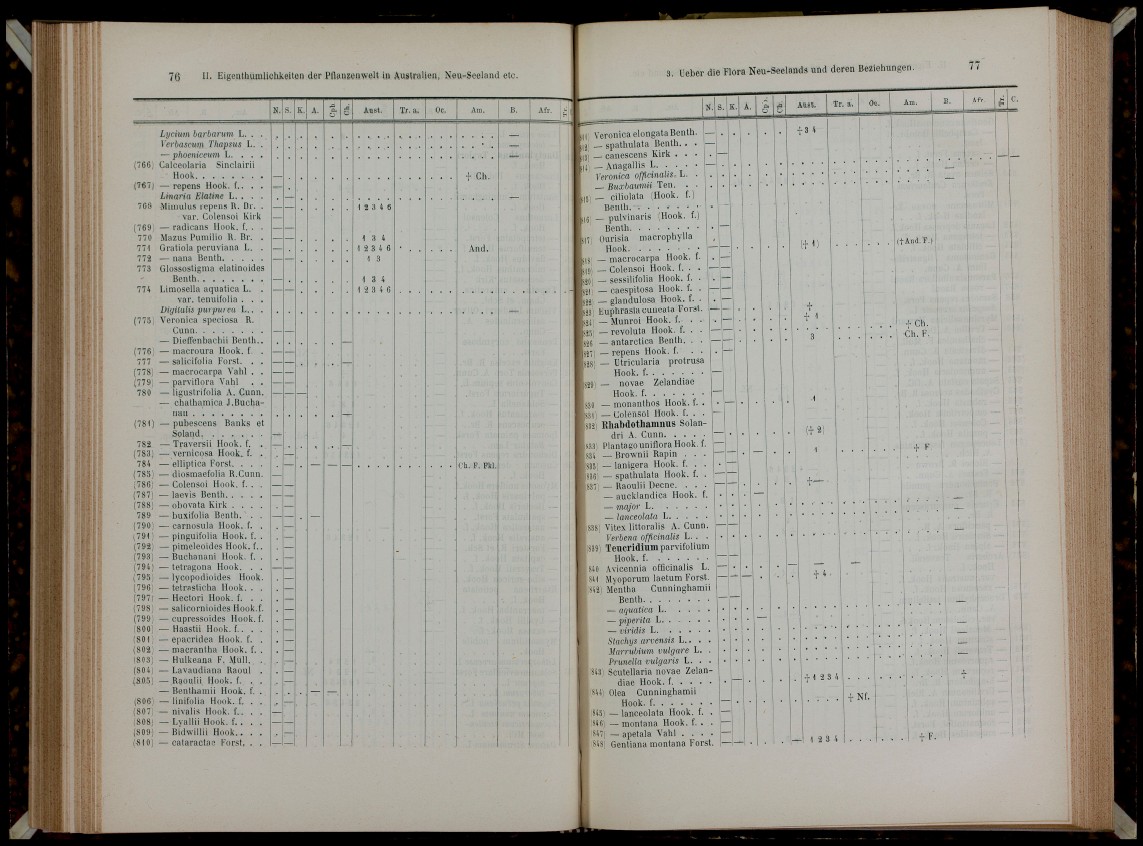 76 II. Eigenthümlichkeiten der Pflanzenwelt in Australien, Neu-Seeland etc.
N. S. K. A. Cpb. Ch. Aust. Tr. a. Oc. Am. B. Afr.
Lycium barbarum L. . . —
Verbascum Thapsus L. . —
— phoeniceum L. . . . —
(766) Calceolaria Sinclairii
Hook. . . . . . . . — ÷ Ch.
(767) — repens Hook. f. . . . —
Linaria Elatine L. . . . — —
769 Mimulus repens R. Br. . — — 1 2 3 4 6
var. Colensoi Kirk —
(769) — radicans Hook. f. . . — —
770 Mazus Pumilio R. Br. . — — 1 3 4
771 Gratiola peruviana L. . — — 1 2 3 4 6 And.
772 — nana Benth. . . . . — — 1 3
773 Glossostigma elatinoides
Benth. . . . . . . . — — 1 3 4
774 Limosella aquatica L. . — — 1 2 3 4 6
var. tenuifolia . . . — —
Digitalis purpurea L. . . —
(775) Veronica speciosa R.
Cunn. . . . . . . . — —
— Dieffenbachii Benth. . —
(776) — macroura Hook. f. . —
777 — salicifolia Forst. . . — — —
(778) — macrocarpa Vahl . . — —
(779) — parviflora Vahl . . — —
780 — ligustrifolia A. Cunn. — — —
— chathamica J.Bucha-
nan . . . . . . . . —
(781) — pubescens Banks et
Soland. . . . . . . —
782 — Traversii Hook. f. . — —
(783) — vernicosa Hook. f. . —
784 — elliptica Forst. . . . — — — — Ch. F. Fkl.
(785) — diosmaefolia R.Cunn. —
(786) — Colensoi Hook. f. . . —
(787) — laevis Benth. . . . . — —
(788) — obovata Kirk . . . . —
789 — buxifolia Benth. . . — — —
(790) — carnosula Hook. f. . —
(791) — pinguifolia Hook. f. . —
(792) — pimeleoides Hook. f. . —
(793) — Buchanani Hook. f. . —
(794) — tetragona Hook. . . — —
(795) — lycopodioides Hook. —
(796) — tetrasticha Hook. . . —
(797) — Hectori Hook. f. . . —
(798) — salicornioides Hook.f. —
(799) — cupressoides Hook. f. —
(800) — Haastii Hook. f. . . . —
(801) — epacridea Hook. f. . —
(802) — macrantha Hook. f. . —
(803) — Hulkeana F. Müll. . —
(804) — Lavaudiana Raoul . —
(805) — Raoulii Hook. f. . . —
— Benthamii Hook. f. . — —
(806) — linifolia Hook. f. . . —
(807) — nivalis Hook. f. . . . —
(808) — Lyallii Hook. f. . . . —
(809) — Bidwillii Hook. . . . —
(810) — cataractae Forst. . . — —
3. Ueber die Flora Neu-Seelands und deren Beziehungen. 77
N. S. K. A. Ch. Aust. Tr. a. Oc. Am. B. Afr. Tr. C.
Veronica elongata Benth. — ÷ 3 4
— spathulata Benth. . . —
— canescens Kirk . . . —
— Anagallis L. . . . . — — —
Veronica officinalis. L. . —
— Buxbaumii Ten. . . —
— ciliolata (Hook. f.)
Benth. . . . . . . . —
— pulvinaris (Hook. f.)
Benth. . . . . . . —
Ourisia macrophylla
Hook. . . . . . . . — (÷ 4) (÷And.F.)
— macrocarpa Hook. f. —
— Colensoi Hook. f. . . —
— sessilifolia Hook. f. . —
821 — caespitosa Hook. f. . —
822 — glandulosa Hook. f. . —
823 Euphrasia cuneata Forst. — — ÷
824 — Munroi Hook. f. . . — ÷ 4
825 — revoluta Hook. f. . . — — ÷ Ch.
826 — antarctica Benth. . . — 3 Ch. F.
827 — repens Hook. f. . . —
828 — Utricularia protrusa
Hook. f. . . . . . . —
829 — novae Zelandiae
Hook. f. . . . . . . —
830 — monanthos Hook. f. . — 4
831 — Colensoi Hook. f. . . —
832) Rhabdothamnus Solan-
dri A. Cunn. . . . . — (÷ 2)
833) Plantago uniflora Hook. f. — ÷ F
834 — Brownii Rapin . . . — 4
835) — lanigera Hook. f. . . —
836) — spathulata Hook. f. . —
837) — Raoulii Decne. . . . — — ÷—
— aucklandica Hook. f. —
— major L. . . . . . —
— lanceolata L. . . . . —
838) Vitex littoralis A. Cunn. — —
Verbena officinalis L. . . —
839) Teucridium parvifolium
Hook. f. . . . . . . — —
840 Avicennia officinalis L. — — —
841 Myoporum laetum Forst. — — — ÷ 4
842) Mentha Cunninghamii
Benth. . . . . . . . — —
— aquatica L. . . . . —
— piperita L. . . . . . — —
— viridis L. . . . . . —
Stachys arvensis L. . . . —
Marrubium vulgare L. . —
Prunella vulgaris L. . . —
843) Scutellaria novae Zelan-
diae Hook. f. . . . . — ÷ 1 2 3 4 ÷
844) Olea Cunninghamii
Hook. f. . . . . . . — ÷ Nf.
845) — lanceolata Hook. f. . —
846) — montana Hook. f. . . —
847) — apetala Vahl . . . . —
848) Gentiana montana Forst. — — — 1 2 3 4 ÷ F.